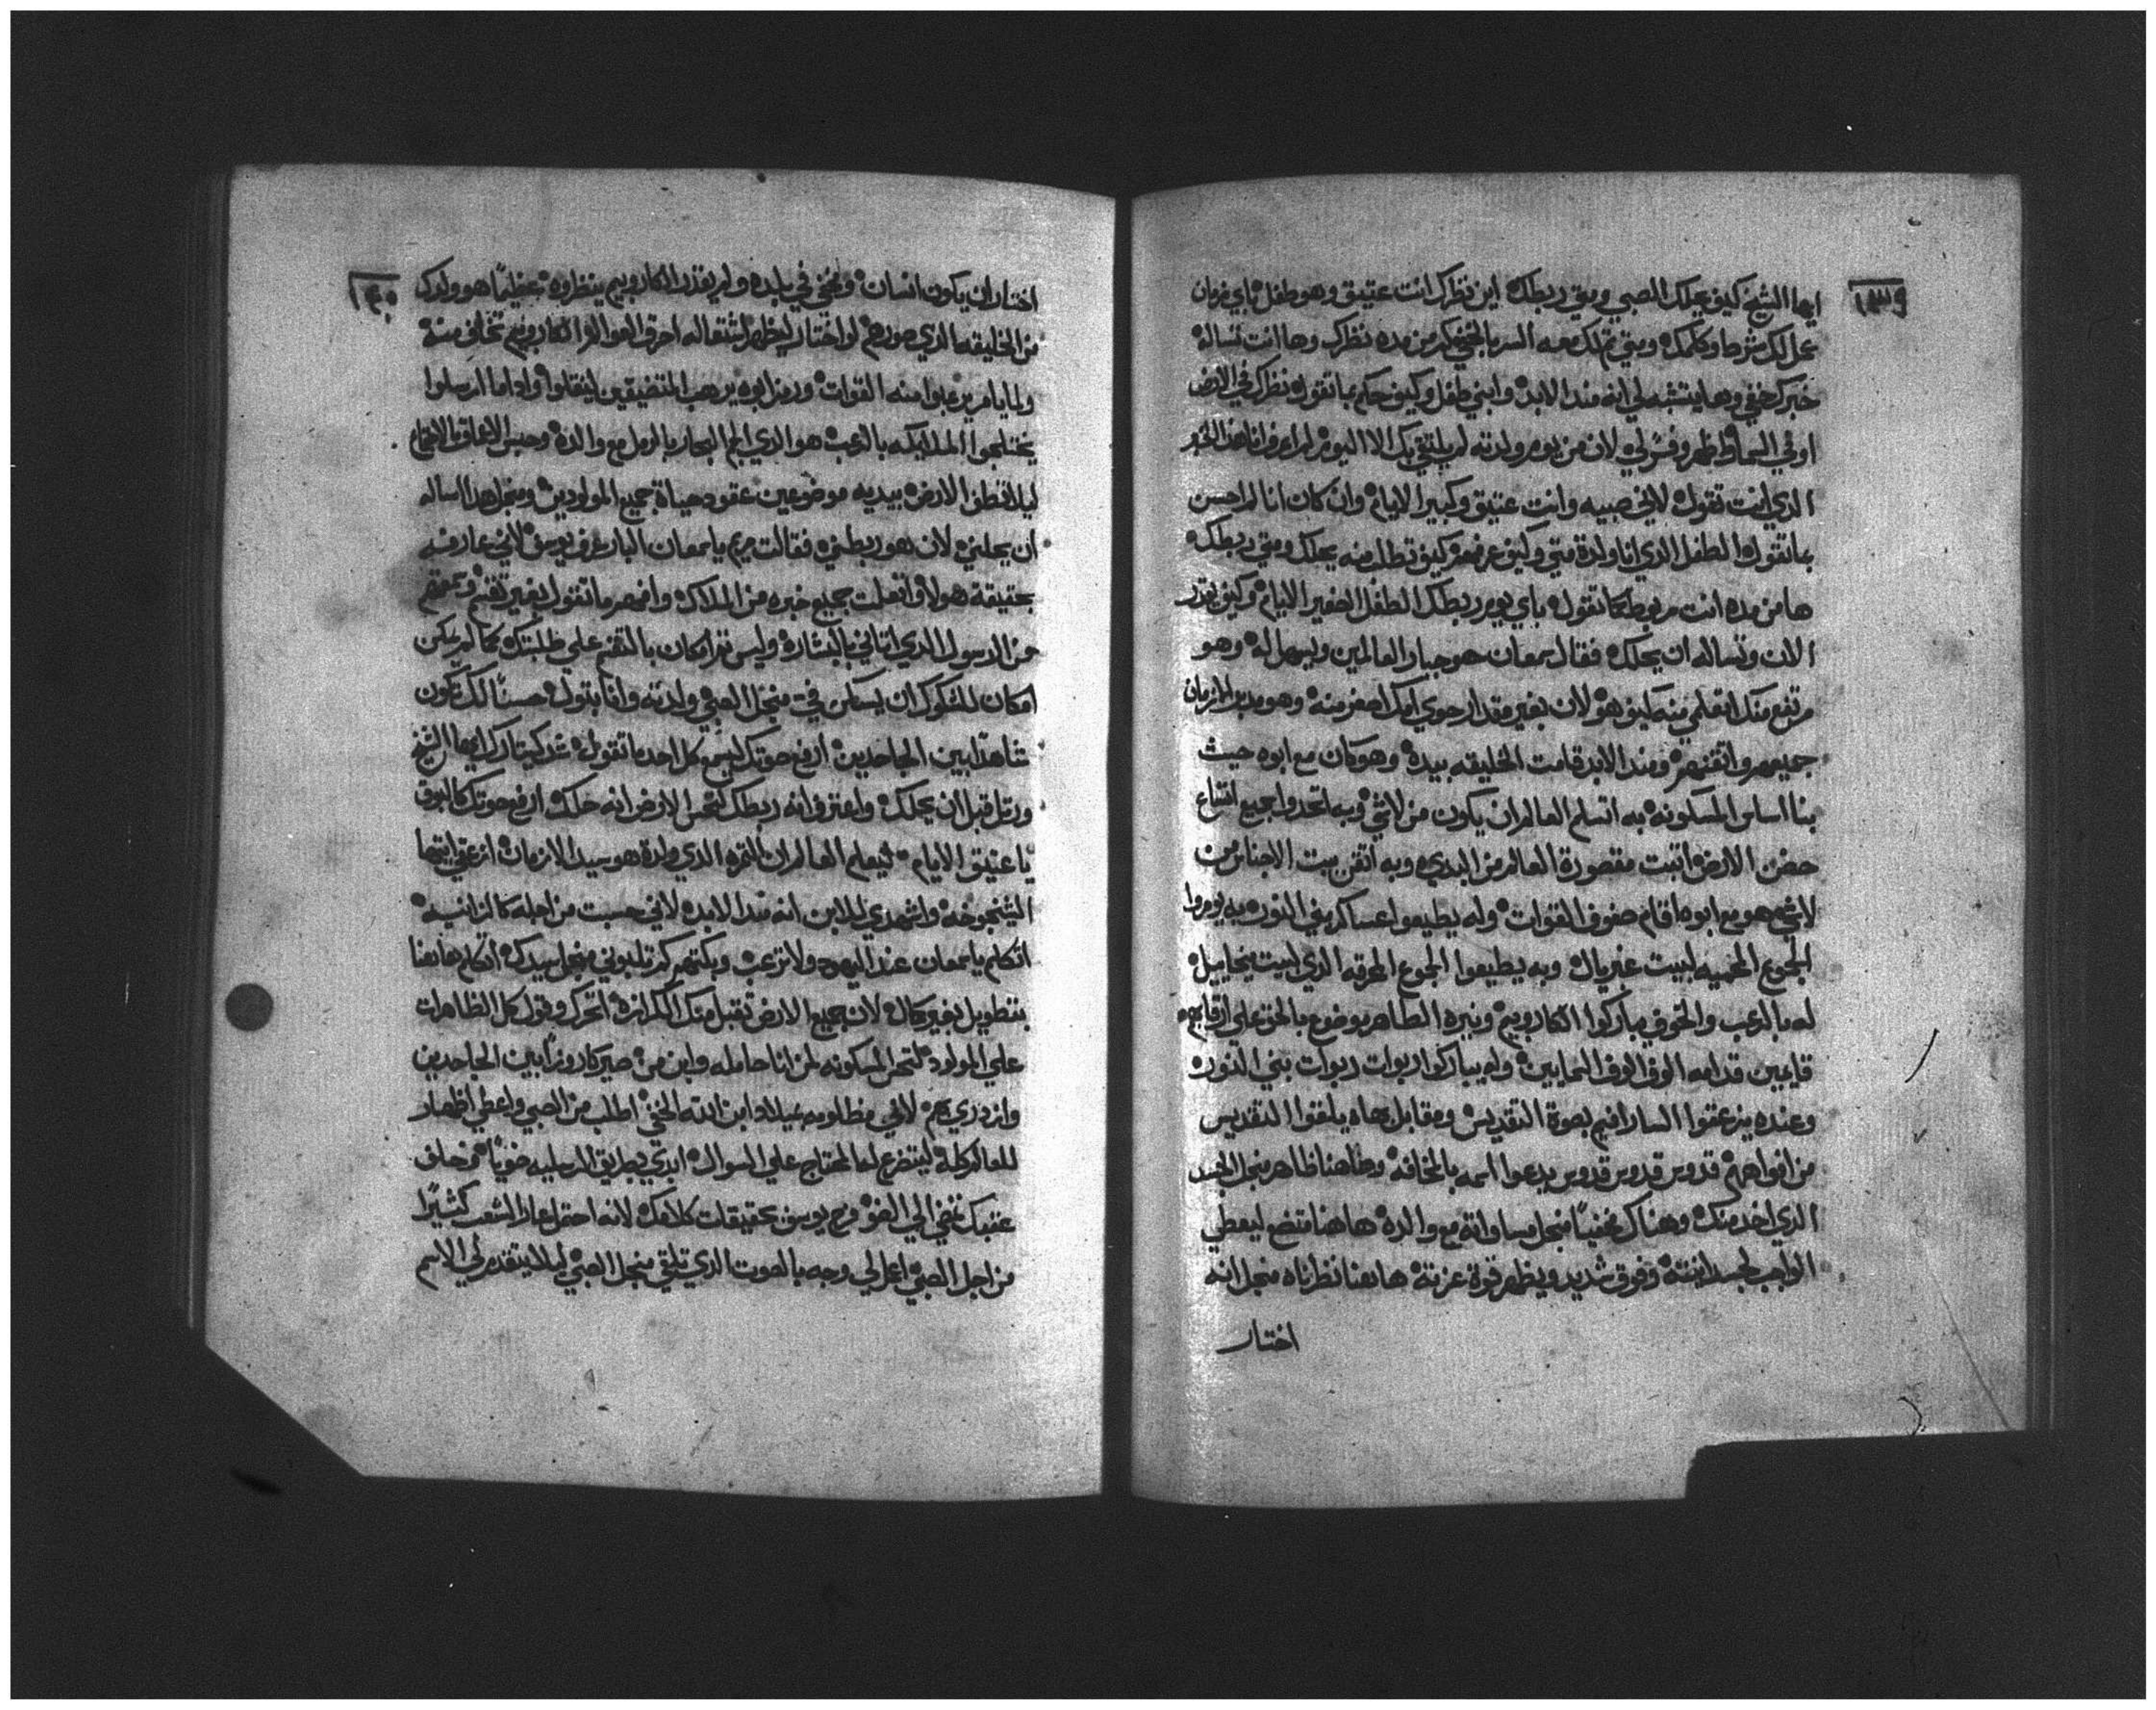 ١٣٩
ايها الشيخ كيف يحلك الصبي ومتى ربطك اين نظرك انت عتيق وهو طفل باي زمان
عمل لك شرط وكلمك ومتى تم لك معه السر بالخفي كم من مده نظرك وها انت تساله
خبرك خفي وها يتشبه لي انه مند الابد وابني طفل وكيف حكم ما تقوله نظرك في الارض
او في السما اظهر وفسر لي لان من يوم ولدته لم يلتقي بك الا اليوم لم اعرف انا هذا الخبر
الدي انت تقول لاني صبيه وانت عتيق وكبير الايام وان كان انا لم احسن
ما تقوله الطفل الدي انا ولدة متى وكيف عرفته كيف تطلب منه يحلك ومتى ربطك
ها من مده انت مربوط كما تقول باي يوم ربطك الطفل الصغير الايام وكيف يقدر
الان وتساله ان يحلك فقال سمعان هو جبار العالمين ويسهل له وهو
مرتفع منك اتعلمي منه كيف هو لان بغير مقدار حوي امك اصغر منه وهو مدبر الازمان
جميعهم واتقنهم ومند الابد قامت الخليقه بيده وهو كان مع ابوه حيث
بنا اساس المسكونه به اتسلم العالم ان يكون من لاشي وبه اتحدوا جميع اتساع
حضن الارض اتبت مقصورة العالم من البدي وبه اتقن بيت الاجناس من
لاشي هو مع ابوه اقام صفوف القوات وله يطيعوا عساكر بني النور به يومروا
الجموع المحميه لبيت غبريال وبه يطيعوا الجموع المحرقه الدي لبيت ميخاييل
له بالرعب والخوف يباركوا الكاروبيم ونيره الطاهر موضوع بالحق علي ارقابهم
قايمين قدامه الوف الوف السمايين وله يباركوا ربوات ربوات بني النور
وعنده يزعقوا السارافيم بصوة التقديس ومقابل بهاه يلقوا التقديس
من افواههم قدوس قدوس قدوس يدعوا اسمه بالمخافه وهاهنا ظاهر منجل الجسد
الدي اخد منك وهناك مخفيا منجل مساواته مع والده هاهنا متضع ليعطي
الواجب لجسد اتيته وفوق شديد ويظهر قوة عزته هاهنا نظرناه منجل انه
اختار
١٤٠
اختار ان يكون انسان ومخفي في بلده ولم يقدر الكاروبيم ينظروه عظيما هو ولدك
من الخليقه الدي صورهم لو اختار ليظهر اشتعاله احرق العوالم الكاروبيم تخاف منه
ولما يامر يرعبوا منه القوات ورمز ابوه يرهب المتضيقين لينقلوا واداما ارسلوا
يختلجوا الملايكه بالرعب هو الدي الجم البحار بالرمل مع والده وحبس الاعماق بالاتضاع
ليلا تطف الارض بيديه موضوعين عقود حياة جميع المولودين ومنجل هدا اساله
ان يحلني لان هو ربطني فقالت مريم يا سمعان البار اعرف يوسف لاني عارفه
بحقيقة هولا واتعلمت جميع خبره من الملاك وافهم ما تقول بغير تفتيش
من الرسول الدي اتاني بالبشاره وليس تم امكان بالتفتيش علي طلبتك كما لم يمكن
امكان للشكوك ان يسكن في منجل الصبي ولدته وانا بتول حسنا لك تكون
شاهدا بين الجاحدين ارفع صوتك ليسمع كل احد ما تقول شد كيتارك ايها الشيخ
ورتل قبل ان يحلك واعترف انه ربطك لتحس الارض انه حلك ارفع صوتك كالبوق
يا عتيق الايام ليعلم العالم ان التمره الدي ولدة هو سيد الازمان ازعقي ايتها
الشيخوخه واشهدي للابن انه مند الابد لاني حسبت من اجله كالزانيه
اتكلم يا سمعان عند اليهود ولا ترعب وبكتهم كم تلبوني منجل سيدك اتكلم هاهنا
بتطويل بغير كلال لان جميع الارض تقبل منك الكرازه اتحرك وقول كل الظاهرات
علي المولود لتحس المسكونه لمن انا حامله وابن من صير كاروزا بين الجاحدين
وازدري بهم لاني مظلومه بميلاد ابن الله الخفي اطلب من الصبي واعطي اظهار
للعالم كله ليتضرع له المحتاج علي السوال ابدي بطريق المرسليه ضويا وخلف
عتبك نخفي الي الضو فرح يوسف بحقيقات كلامك لانه احتمل عار الشعب كثيرا
من اجل الصبي اعمل لي وجه بالصوت الدي تلقي منجل الصبي ليلا يتقدم لي الاسم